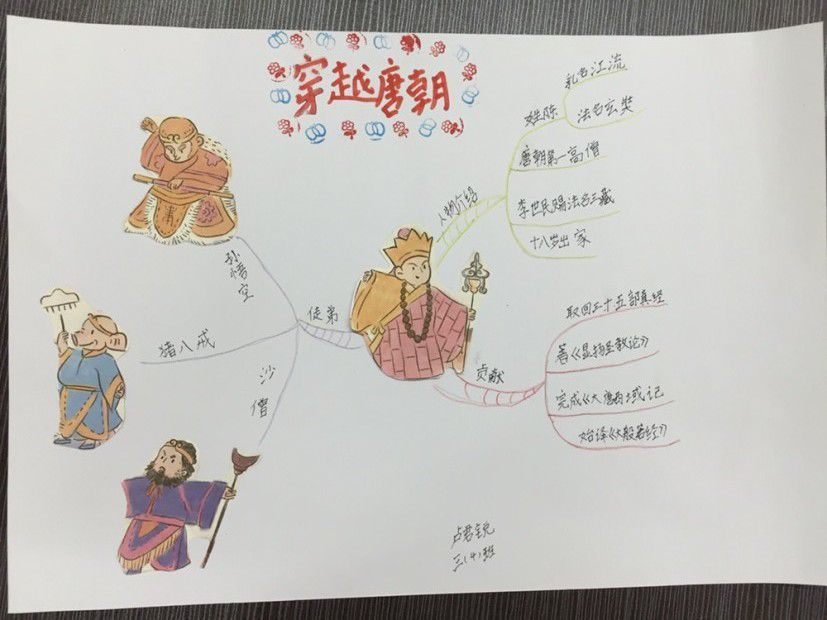 穿越唐朝
乳名江流
姓陈
法名玄奘
唐朝第一高僧
李世民赐法名三藏
十八岁出家
人物介绍
孙悟空
徒弟
猪八戒
沙僧
取回三十五部真经
著《显扬圣教论》
贡献
完成《大唐西域记
始译《大般若经》
卢君锐
三(4)班